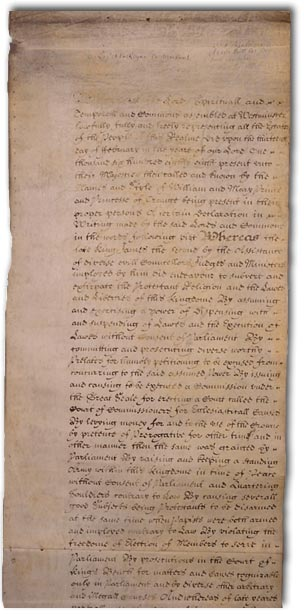 Lords Spirituall and
Temporall and Commons assembled at Westminster
lawfully fully and freely representing all the Estates
of the People of this Realme did upon the thirteenth
day of February in the yeare of our Lord One
thousand six hundred eighty eight present unto
their Majesties then called and known by the
Names and Stile of William and Mary Prince
and Princesse of Orange being present in their
proper persons a certain Declaration in
Writeing made by the said Lords and Commons
in the words following viz Whereas the
late King James the second by the Assistance
of diverse evill Councellors Judges and Ministers
imployed by him did endeavour to subvert and
extirpate the Protestant Religion and the Lawes
and Liberties of this Kingdome By assuming
and exercising a power of Dispensing with
and suspending of Lawes and the Execution of
Lawes without Consent of Parliament By
committing and prosecuting diverse worthy
Prelates for humbly petitioning to be excused from
concurring to the said assumed Power By issuing
and causing to be executed a Commission under
the Great Seale for erecting a Court called the
Court of Commissioners for Ecclesiasticall Causes
By levying money for and to the use of the Crowne
by pretence of Prerogative for other time and in
other manner then the same was granted by
Parliament By raising and keeping a standing
Army within this Kingdome in time of Peace
without Consent of Parliament and Quartering
Souldiers contrary to Law By causing severall
good Subjects being Protestants to be disarmed
at the same time when Papists were both armed
and imployed contrary to Law By violating the
freedome of Election of Members to serve in
Parliament By prosecutions in the Court of
Kings Bench for matters and causes cognizable
only in Parliament and by diverse other arbitrary
and illegall Courses And whereas of late yeares